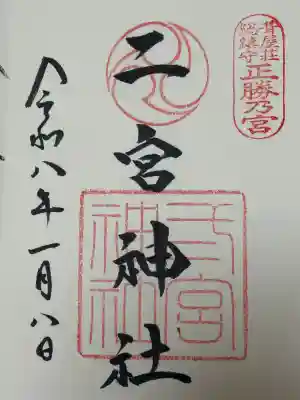 葺屋荘
総鎮守
正勝乃宮
二宮神社
二宮
神社
令和八年一月八日